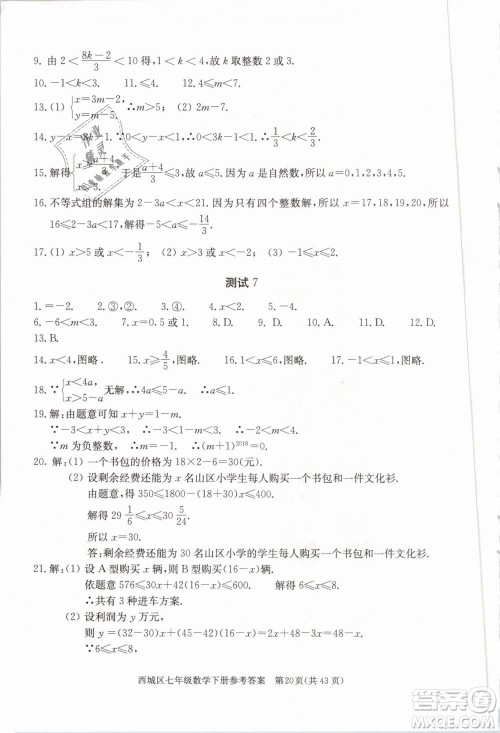 9. 由 2＜(8k－2)/3＜10 得，1＜k＜4，故 k 取整数 2 或 3.
10. －1＜k＜3. 11. ≤4. 12. 2≤a＜3.
13. (1) {x＝3m－2, ∴m＞5；(2) 2m－7.
14. y－x＝ 0＜y－x＜1. ∴0＜ ＜1. 解得 1/3＜
15. 解得 于是 ＜(a＋4)/3≤3. ∵a 是自然数，所以
16. 不等式组的解集为 2－3a＜x＜21. 因为只有四个整数解，所以 x＝17，18，19，20.
16≤2－3a＜17. 解得－5＜a≤－14/3.
17. (1) x＞5 或 x＜－1/3； (2) x＜－3.
测试 7
1. ＝－2. 2. ③，②. 3. ④. 4. x＜2. 5. a≤－1.
6. －1＜m＜2. 7. x＝0.5 或 1. 8. D. 9. D. 10. A. 11. D. 12. D.
13. B.
14. x＜4，图略. 15. x≥4/5，图略. 16. 1＜x＜6，图略. 17. －1＜x≤4，图略.
18. ∵{x＜4a, x＞5－a 无解，∴4a≤5－a. 解得 a≤1.
19. 解：由题意可知 x＋y＝1－m.
∵－3＜m≤0，∴－3＜m≤0.
∵m 为负整数，∴m＝－1. ∴(m＋1)²⁰¹⁸＝0.
20. 解：(1) 一个书包的价格为 18×2－6＝30(元).
(2) 设剩余经费还能为 x 名山区小学生每人购买一个书包和一件文化衫.
由题意，得 350≤1800－(18＋30)x≤400.
解得 29 1/6≤x≤30 5/24.
所以 x＝30.
答：剩余经费还能为 30 名山区小学的学生每人购买一个书包和一件文化衫.
21. 解：(1) 设 A 型购买 x 辆，则 B 型购买(16－x)辆.
依题意 576≤30x＋42(16－x)≤600. 解得 6≤x≤8.
∴共有 3 种进车方案.
(2) 设利润为 y 万元，
则 y＝(32－30)x＋(45－42)(16－x)＝2x＋48－3x＝－x＋48.
西城区七年级数学下册参考答案 第20页(共 43 页)